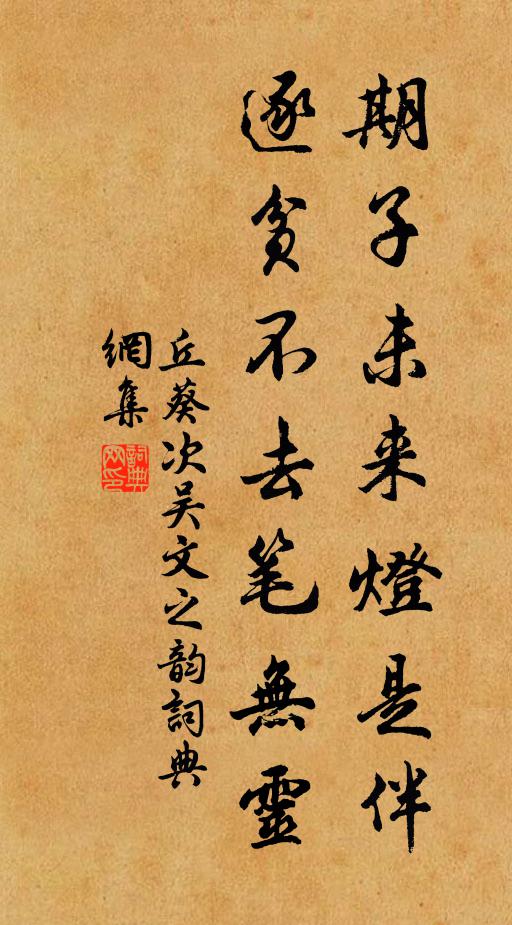 期子未来燈是伴
逐貧不去笔無靈
丘葵次吴文之韵詞典
網集
詞典網印